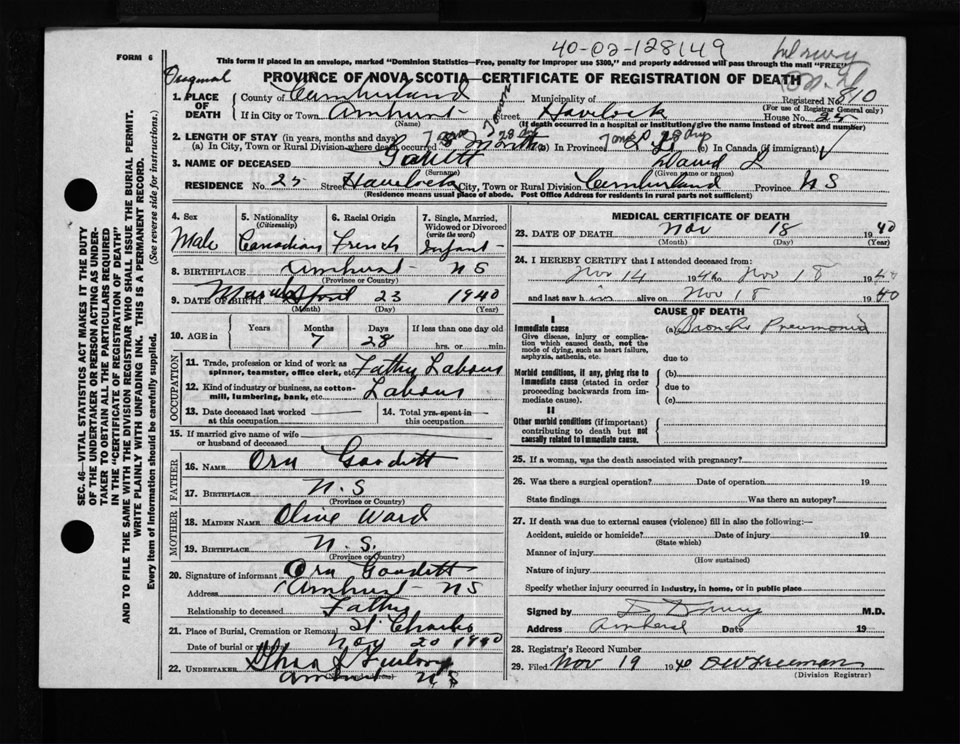 FORM 6
40-02-128149
This form if placed in an envelope, marked "Dominion Statistics—Free, penalty for improper use $300," and properly addressed will pass through the mail "FREE"
Original
PROVINCE OF NOVA SCOTIA—CERTIFICATE OF REGISTRATION OF DEATH
Registered No. 810
(For use of Registrar General only)
1. PLACE OF DEATH
County of Cumberland Municipality of
If in City or Town Amherst Street Havelock House No. 25
(Name) (If death occurred in a hospital or institution, give the name instead of street and number)
2. LENGTH OF STAY (in years, months and days)
(a) In City, Town or Rural Division where death occurred 7 mos 28 dys (b) In Province 7 mos 28 dys (c) In Canada (if immigrant)
3. NAME OF DECEASED David
(Surname) (Given name or names)
RESIDENCE No. 25 Street Havelock City, Town or Rural Division Cumberland Province NS
(Residence means usual place of abode. Post Office Address for residents in rural parts not sufficient)
4. Sex Male
5. Nationality (Citizenship) Canadian
6. Racial Origin French
7. Single, Married, Widowed or Divorced (write the word) Infant
8. BIRTHPLACE Amherst NS
(Province or Country)
9. DATE OF BIRTH March April 23 1940
(Month) (Day) (Year)
10. AGE in Years Months 7 Days 28 If less than one day old hrs. or min.
OCCUPATION
11. Trade, profession or kind of work as spinner, teamster, office clerk, etc. Father Labour
12. Kind of industry or business, as cotton-mill, lumbering, bank, etc. Labour
13. Date deceased last worked at this occupation
14. Total yrs. spent in this occupation
15. If married give name of wife or husband of deceased
FATHER
16. NAME Ora Goodett
17. BIRTHPLACE N.S
(Province or Country)
MOTHER
18. MAIDEN NAME Olive Ward
19. BIRTHPLACE N.S.
(Province or Country)
20. Signature of informant Ora Goodett
Address Amherst NS
Relationship to deceased Father
21. Place of Burial, Cremation or Removal St Charles
Date of burial or removal Nov 20 1940
22. UNDERTAKER
Amherst NS
MEDICAL CERTIFICATE OF DEATH
23. DATE OF DEATH Nov 18 1940
(Month) (Day) (Year)
24. I HEREBY CERTIFY that I attended deceased from:
Nov 14 1940 to Nov 18 1940
and last saw him alive on Nov 18 1940
CAUSE OF DEATH
I
Immediate cause (a) Broncho Pneumonia
Give disease, injury or complication which caused death, not the mode of dying, such as heart failure, asphyxia, asthenia, etc.
due to
Morbid conditions, if any, giving rise to immediate cause (stated in order proceeding backwards from immediate cause).
(b)
due to
(c)
II
Other morbid conditions (if important) contributing to death but not causally related to immediate cause.
25. If a woman, was the death associated with pregnancy?
26. Was there a surgical operation? Date of operation 19
State findings Was there an autopsy?
27. If death was due to external causes (violence) fill in also the following:—
Accident, suicide or homicide? Date of injury 19
(State which)
Manner of injury
(How sustained)
Nature of injury
Specify whether injury occurred in industry, in home, or in public place
Signed by M.D.
Address Amherst Date 19
28. Registrar's Record Number
29. Filed Nov 19 1940 Freeman
(Division Registrar)
SEC. 46—VITAL STATISTICS ACT MAKES IT THE DUTY
OF THE UNDERTAKER OR PERSON ACTING AS UNDER-
TAKER TO OBTAIN ALL THE PARTICULARS REQUIRED
IN THE "CERTIFICATE OF REGISTRATION OF DEATH"
AND TO FILE THE SAME WITH THE DIVISION REGISTRAR WHO SHALL ISSUE THE BURIAL PERMIT.
WRITE PLAINLY WITH UNFADING INK. THIS IS A PERMANENT RECORD.
Every item of information should be carefully supplied. (See reverse side for instructions.)